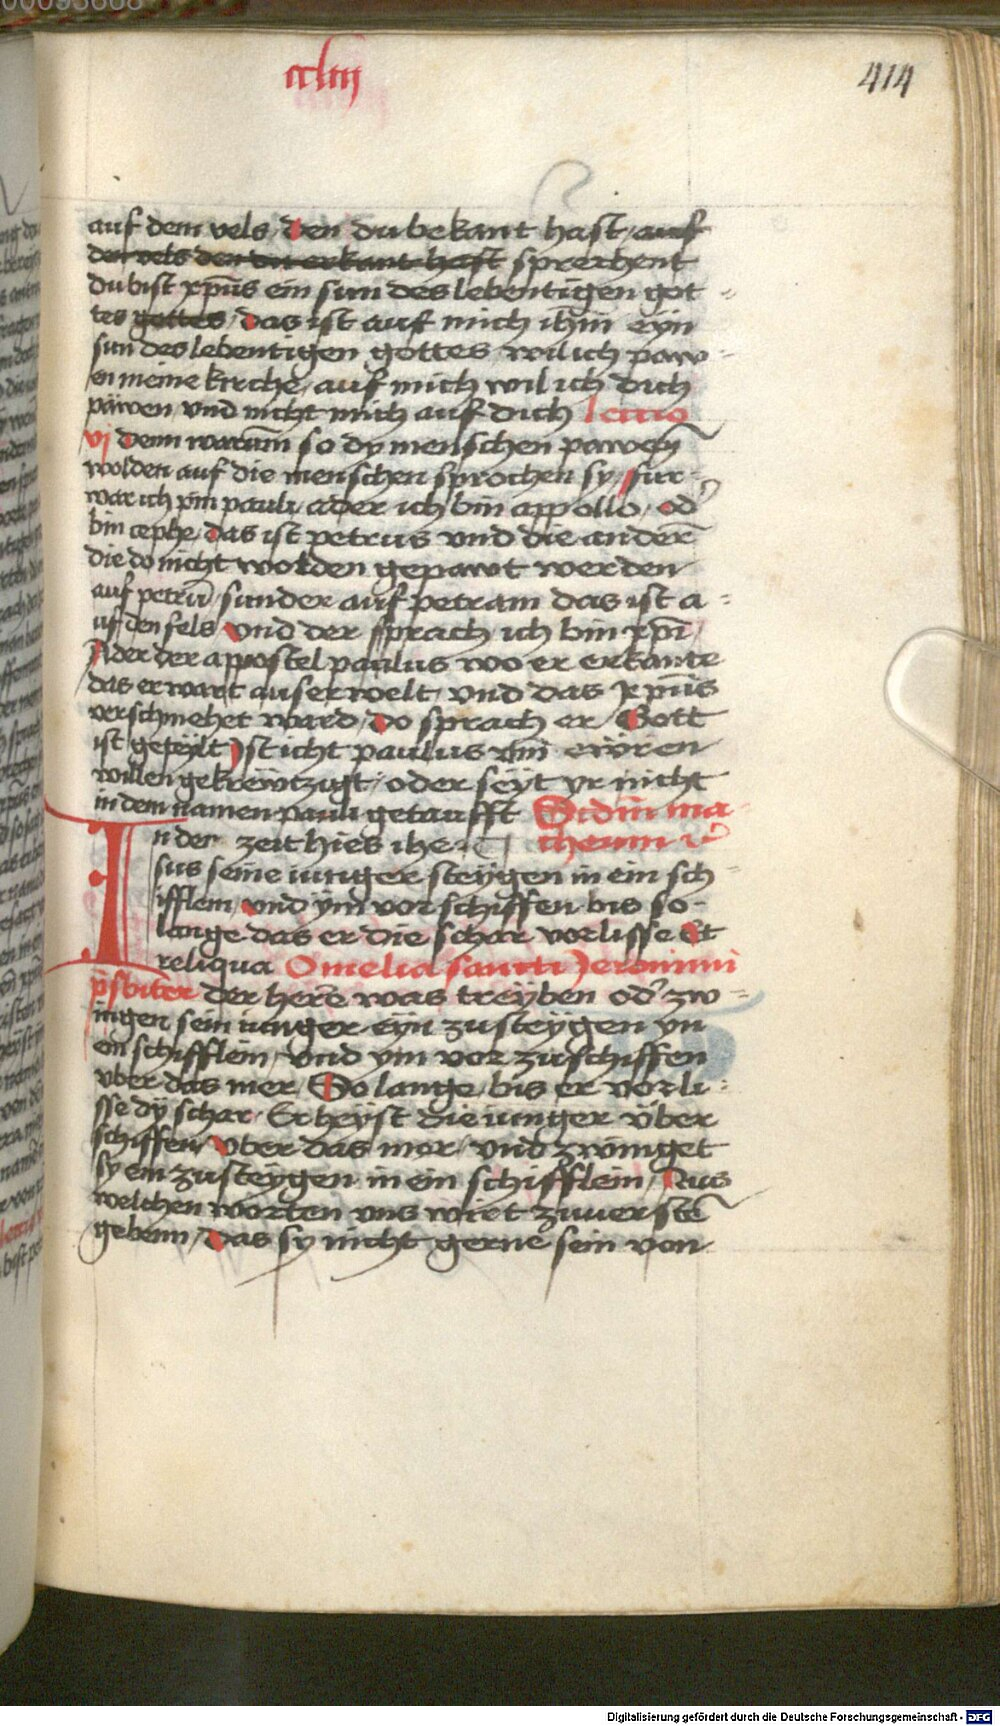 00093608
ccliij
414
auf dem vels, den du bekant hast auf
den vels den du erkant hast sprechent
du bist xp̄us ein sun des lebentigen got-
tes gottes, das ist auf mich ihm eyn
sun des lebentigen gottes wil ich paw-
en meine kirche, auf mich wil ich dich
pawen, vnd nicht mich auf dich lectio
vj denn warum̄ so dy menschen pawen
wolden auf die menschen sprochen sy, fur-
war ich pin pauli, ader ich bin appollo, od'
bin cephe, das ist petrus vnd die andern̄
die do nicht wolden gepawt werden
auf petru̅ sunder auf petram das ist a-
uf den fels vnd der sprach, ich bin xp̄i,
Ader der appostel paulus wo er erkante
das er wart auserwelt, vnd das xp̄us
verschmehet ward, do sprach er, Gott
ist geteylt Ist icht paulus vm ewren
willen gekrewtzigt, oder seyt yr nicht
in dem namen pauli getaufft Scdm̄ ma-
In der zeit hies ihe- theum
sus seine iunger steygen in ein sch-
ifflein, vnd ym vorschiffen bis so-
lange das er die schar vorlisse Et
reliqua Omelia sancti Jeronimi
p̄sbiter der here was treyben od' zw-
ingen sein iunger eyn zusteygen yn
ein schifflein, vnd ym vor zuschiffen
vber das mer, So lange bis er vorli-
sse dy schar, Er heyst die iunger vber
schiffen, vber das mer, vnd zwinget
sy ein zusteygen in ein schifflein, Aus
welchen worten vns wirt zuuersten̄
gebenn, das sy nicht gerne sein von
Digitalisierung gefördert durch die Deutsche Forschungsgemeinschaft - DFG